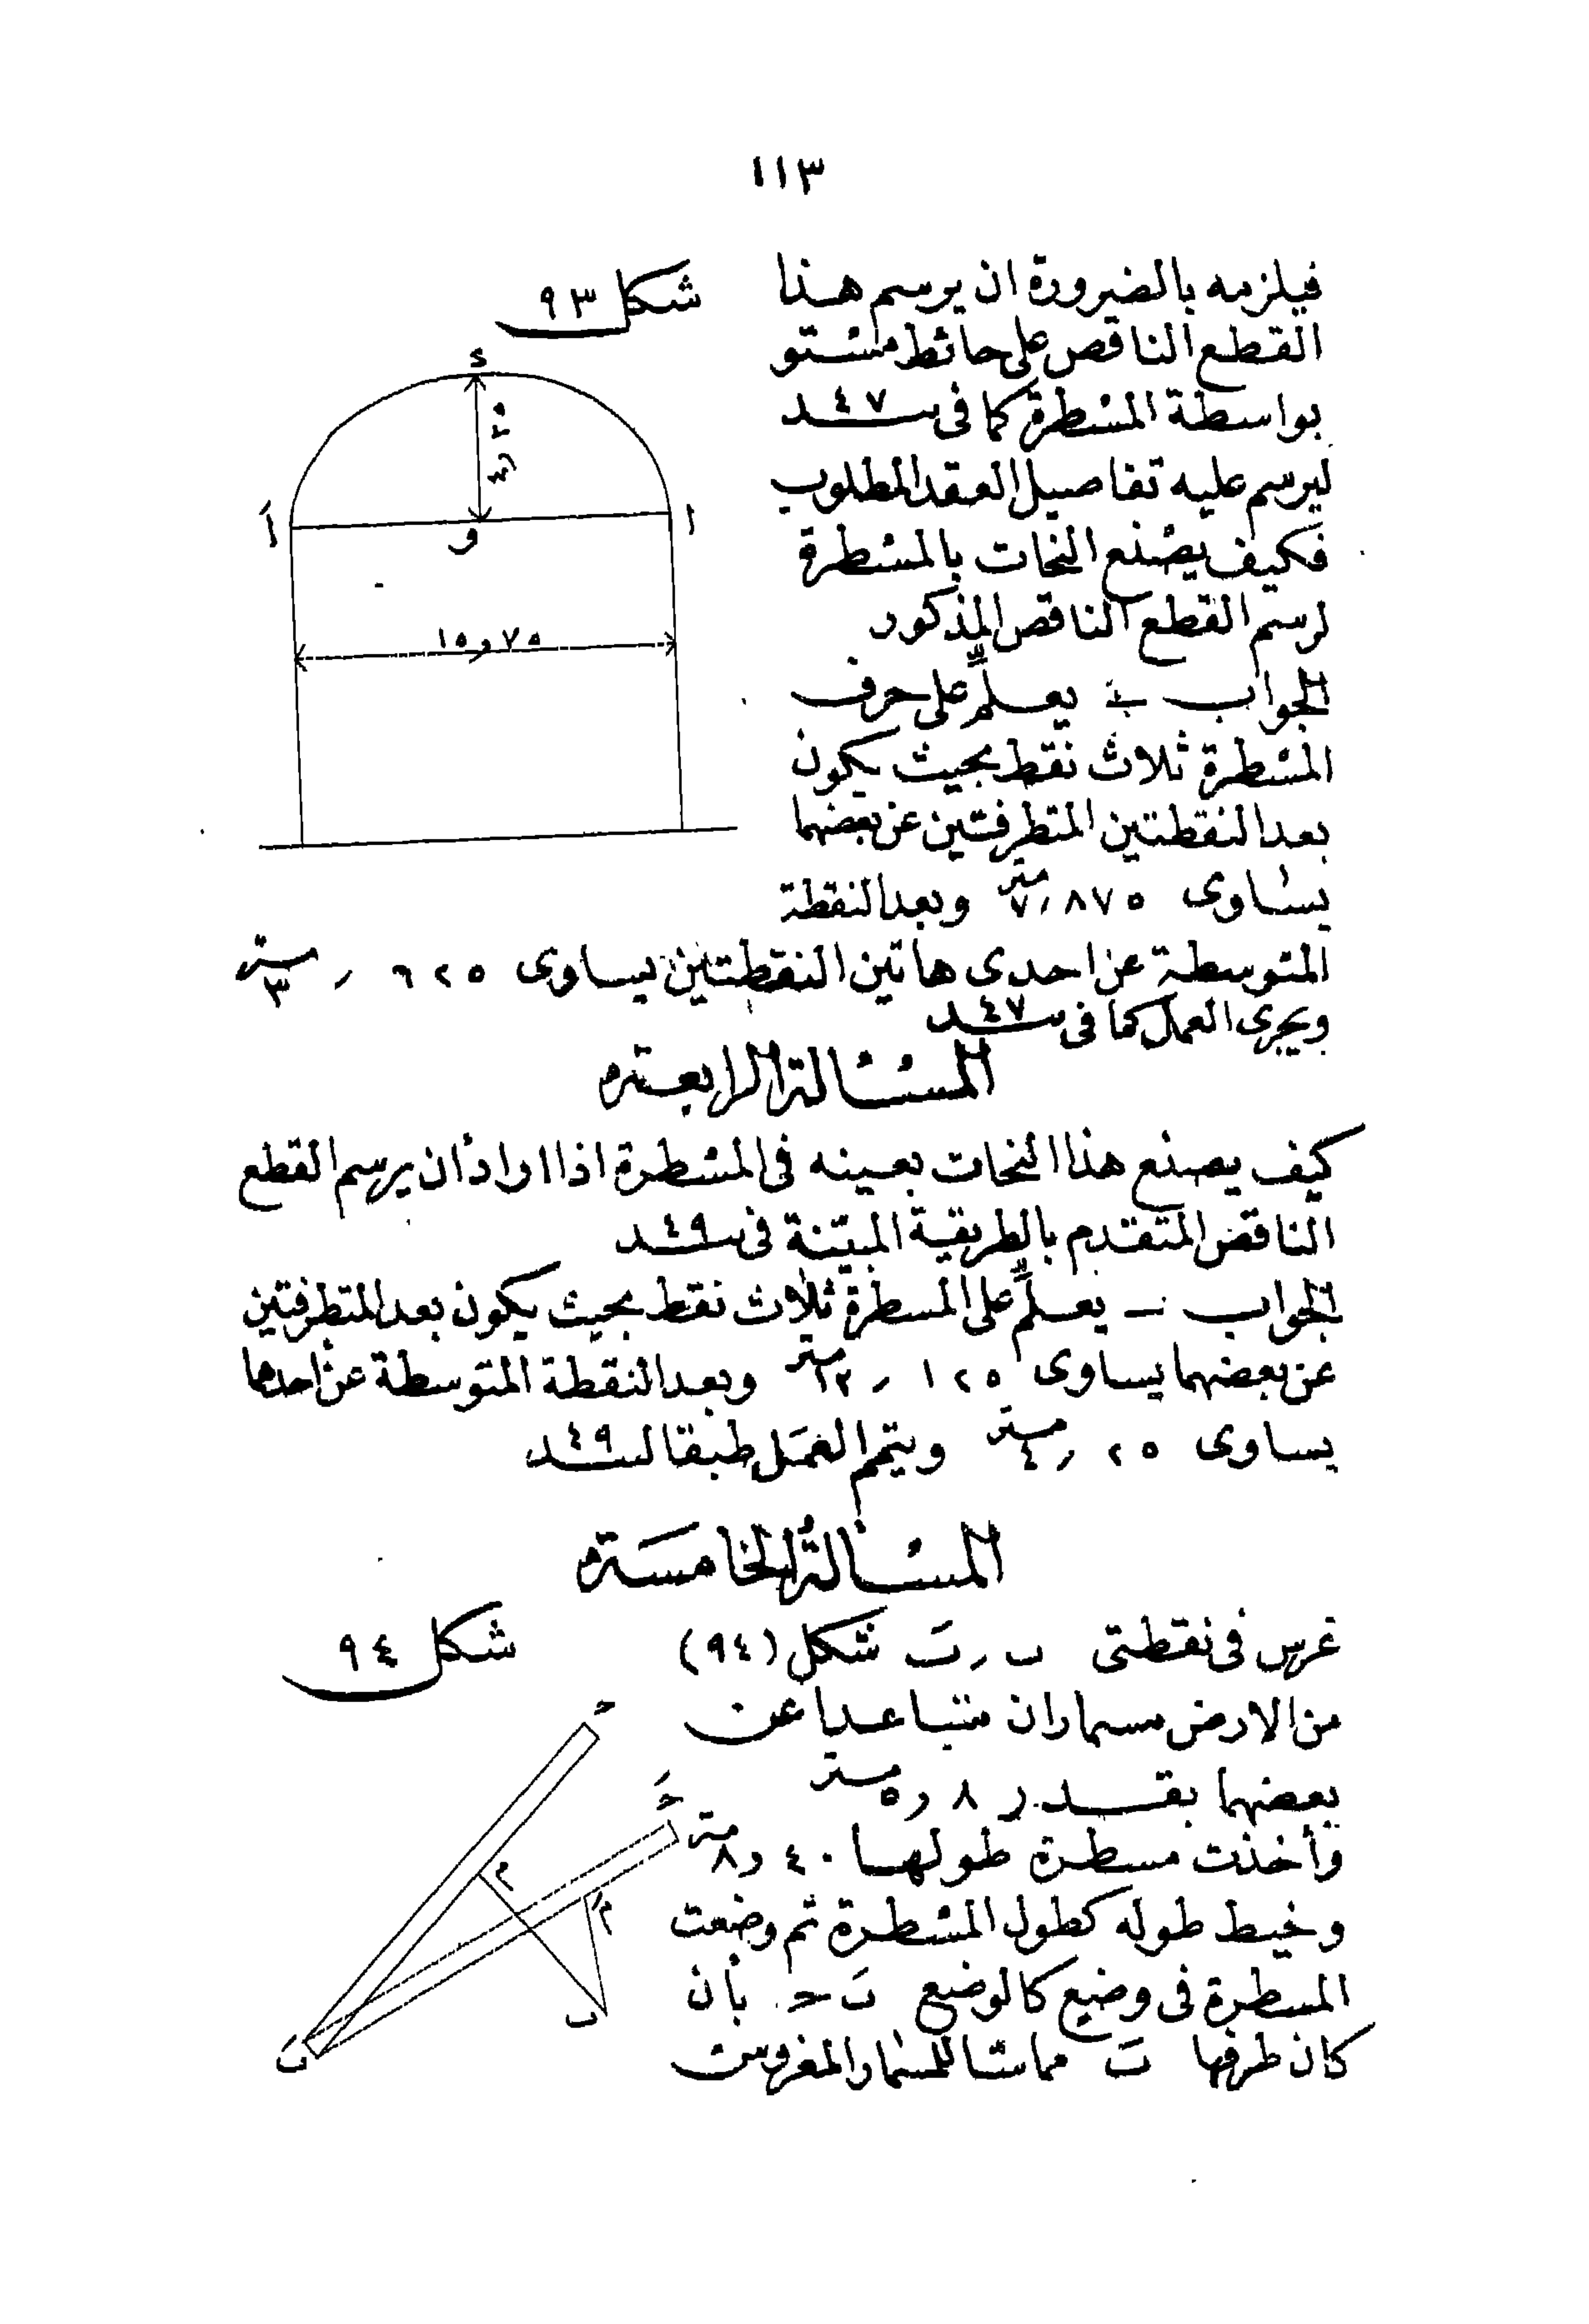 ١١٣
فيلزمه بالضرورة ان يرسم هذا
القطع الناقص على حائط مستو
بواسطة المسطرة كما فى ٤٧ــند
ليرسم عليه تفاصيل العقد المطلوب
فكيف يصنع النحات بالمسطرة
لرسم القطع الناقص المذكور
شكل ٩٣
ء
٤٫٢٥
أَ
و
ا
١٥٫٧٥
الجواب ـ يعلِّم على حرف
المسطرة ثلاث نقط بحيث يكون
بعد النقطتين المتطرفتين عن بعضهما
يساوى ٧٫٨٧٥ متر وبعد النقطة
المتوسطة عن احدى هاتين النقطتين يساوى ٣٫٦٢٥ متر
ويجرى العمل كما فى ٤٧ــند
المسئالة الرابعة
كيف يصنع هذا النحات بعينه فى المسطرة اذا اراد أن يرسم القطع
الناقص المتقدم بالطريقة المبيّنة فى ٤٩ــند
الجواب ـ يعلِّم على المسطرة ثلاث نقط بحيث يكون بعد المتطرفتين
عن بعضهما يساوى ١٢٫١٢٥ متر وبعد النقطة المتوسطة عن احدها
يساوى ٤٫٢٥ متر ويتمم العمل طبقا لـ ٤٩ــند
المسئالة الخامسة
غرس فى نقطتى ب ، بَ شكل (٩٤)
من الارض مسماران متباعدا عن
بعضهما بقدر ٥٫٨ متر
وأخذت مسطرة طولها ٨٫٤٠ متر
وخيط طوله كطول المسطرة ثم وضعت
المسطرة فى وضع كالوضع بَ حـ بأن
كان طرفها بَ مماسا للمسمار المغروس
شكل ٩٤
حـ
حـَ
م
مَ
ب
بَ